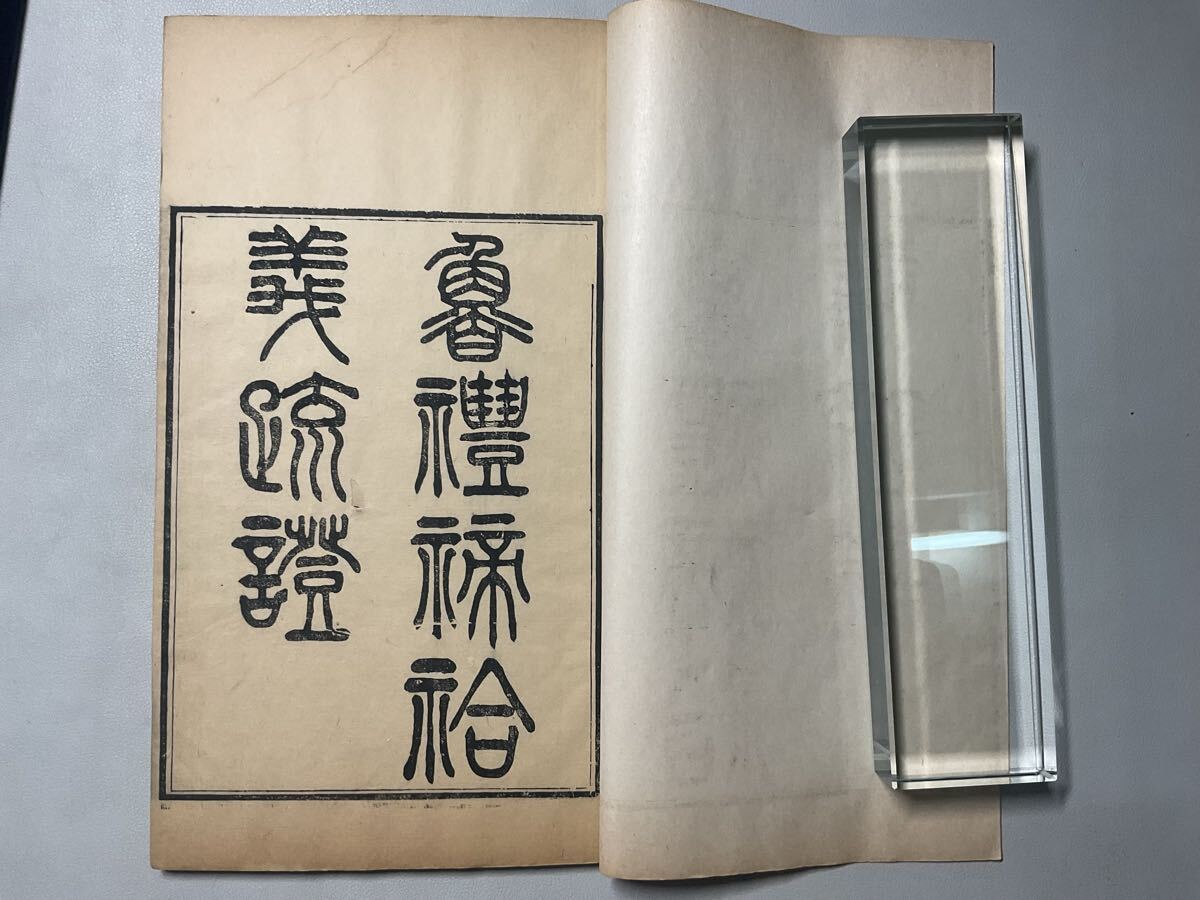 魯禮禘祫
義疏證